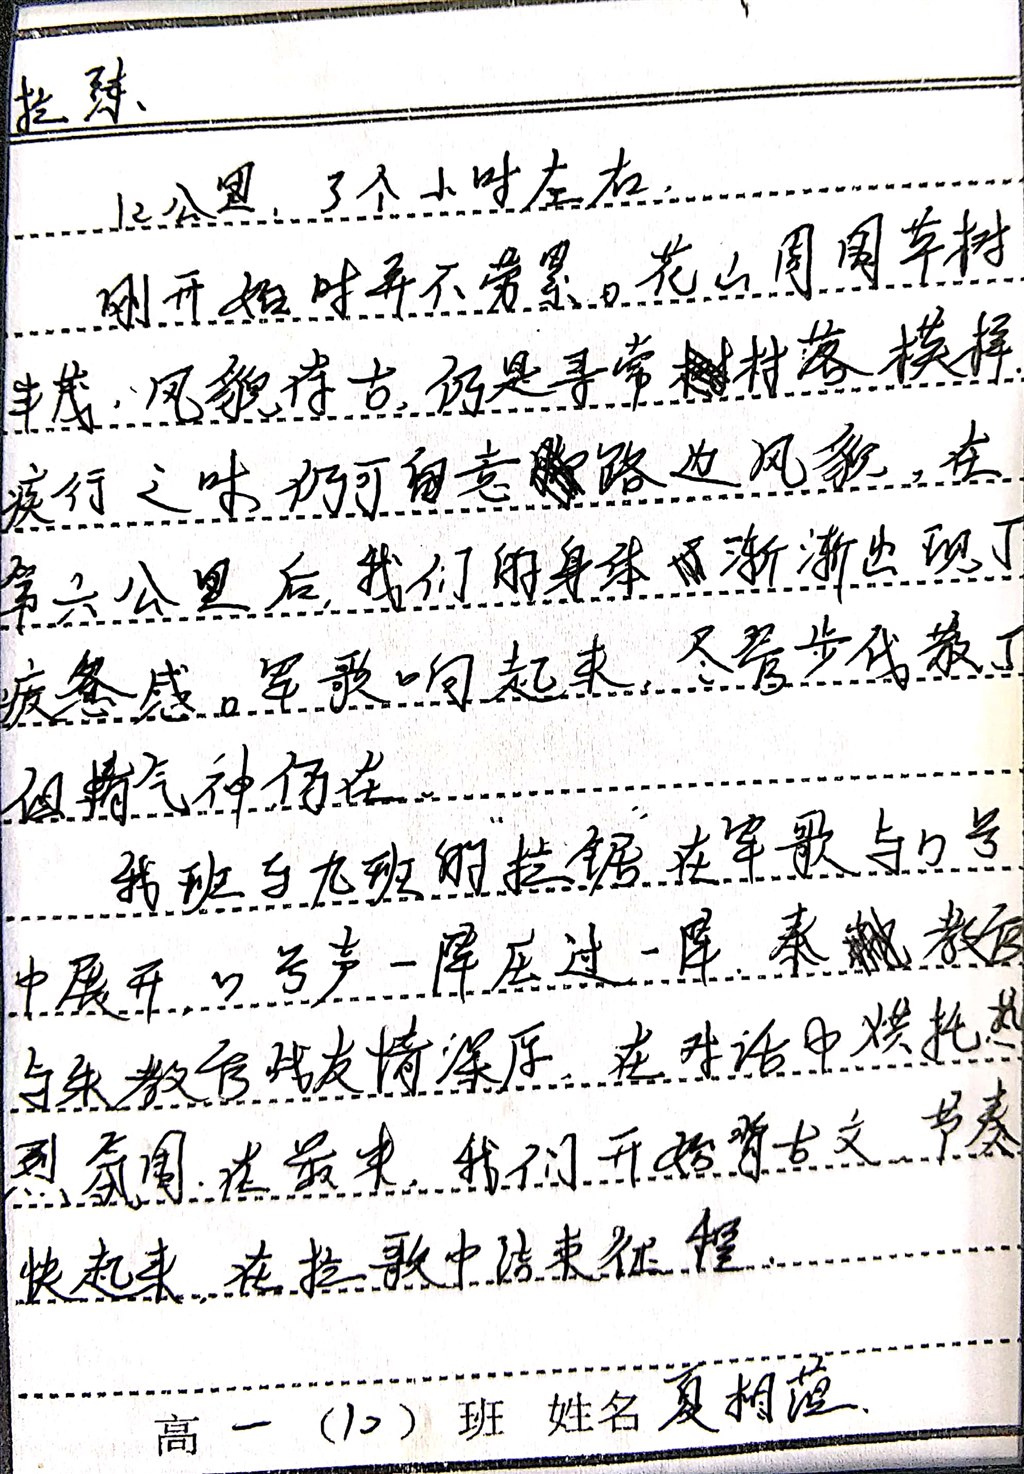 拉练、
12公里，3个小时左右.
刚开始时并不劳累。花山周围草树
丰茂，风貌存古，仍是寻常村落模样.
疾行之味仍可留意路边风貌，在
第六公里后，我们的身体渐渐出现了
疲惫感。军歌响起来，尽管步伐散了
但精气神仍在.
我班与九班的“拉锯”在军歌与口号
中展开，口号声一阵压过一阵.秦教官
与朱教官战友情深厚，在对话中烘托热
烈氛围.在最末，我们开始背古文 节奏
快起来，在拉歌中结束征程.
高一（10）班 姓名夏相